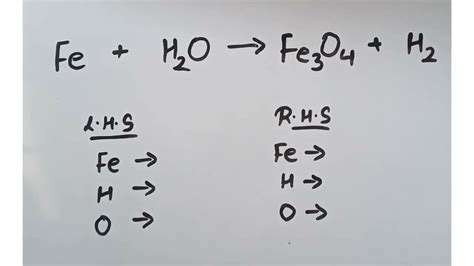 Fe + H₂O → Fe₃O₄ + H₂
L.H.S
Fe →
H →
O →
R.H.S
Fe →
H →
O →